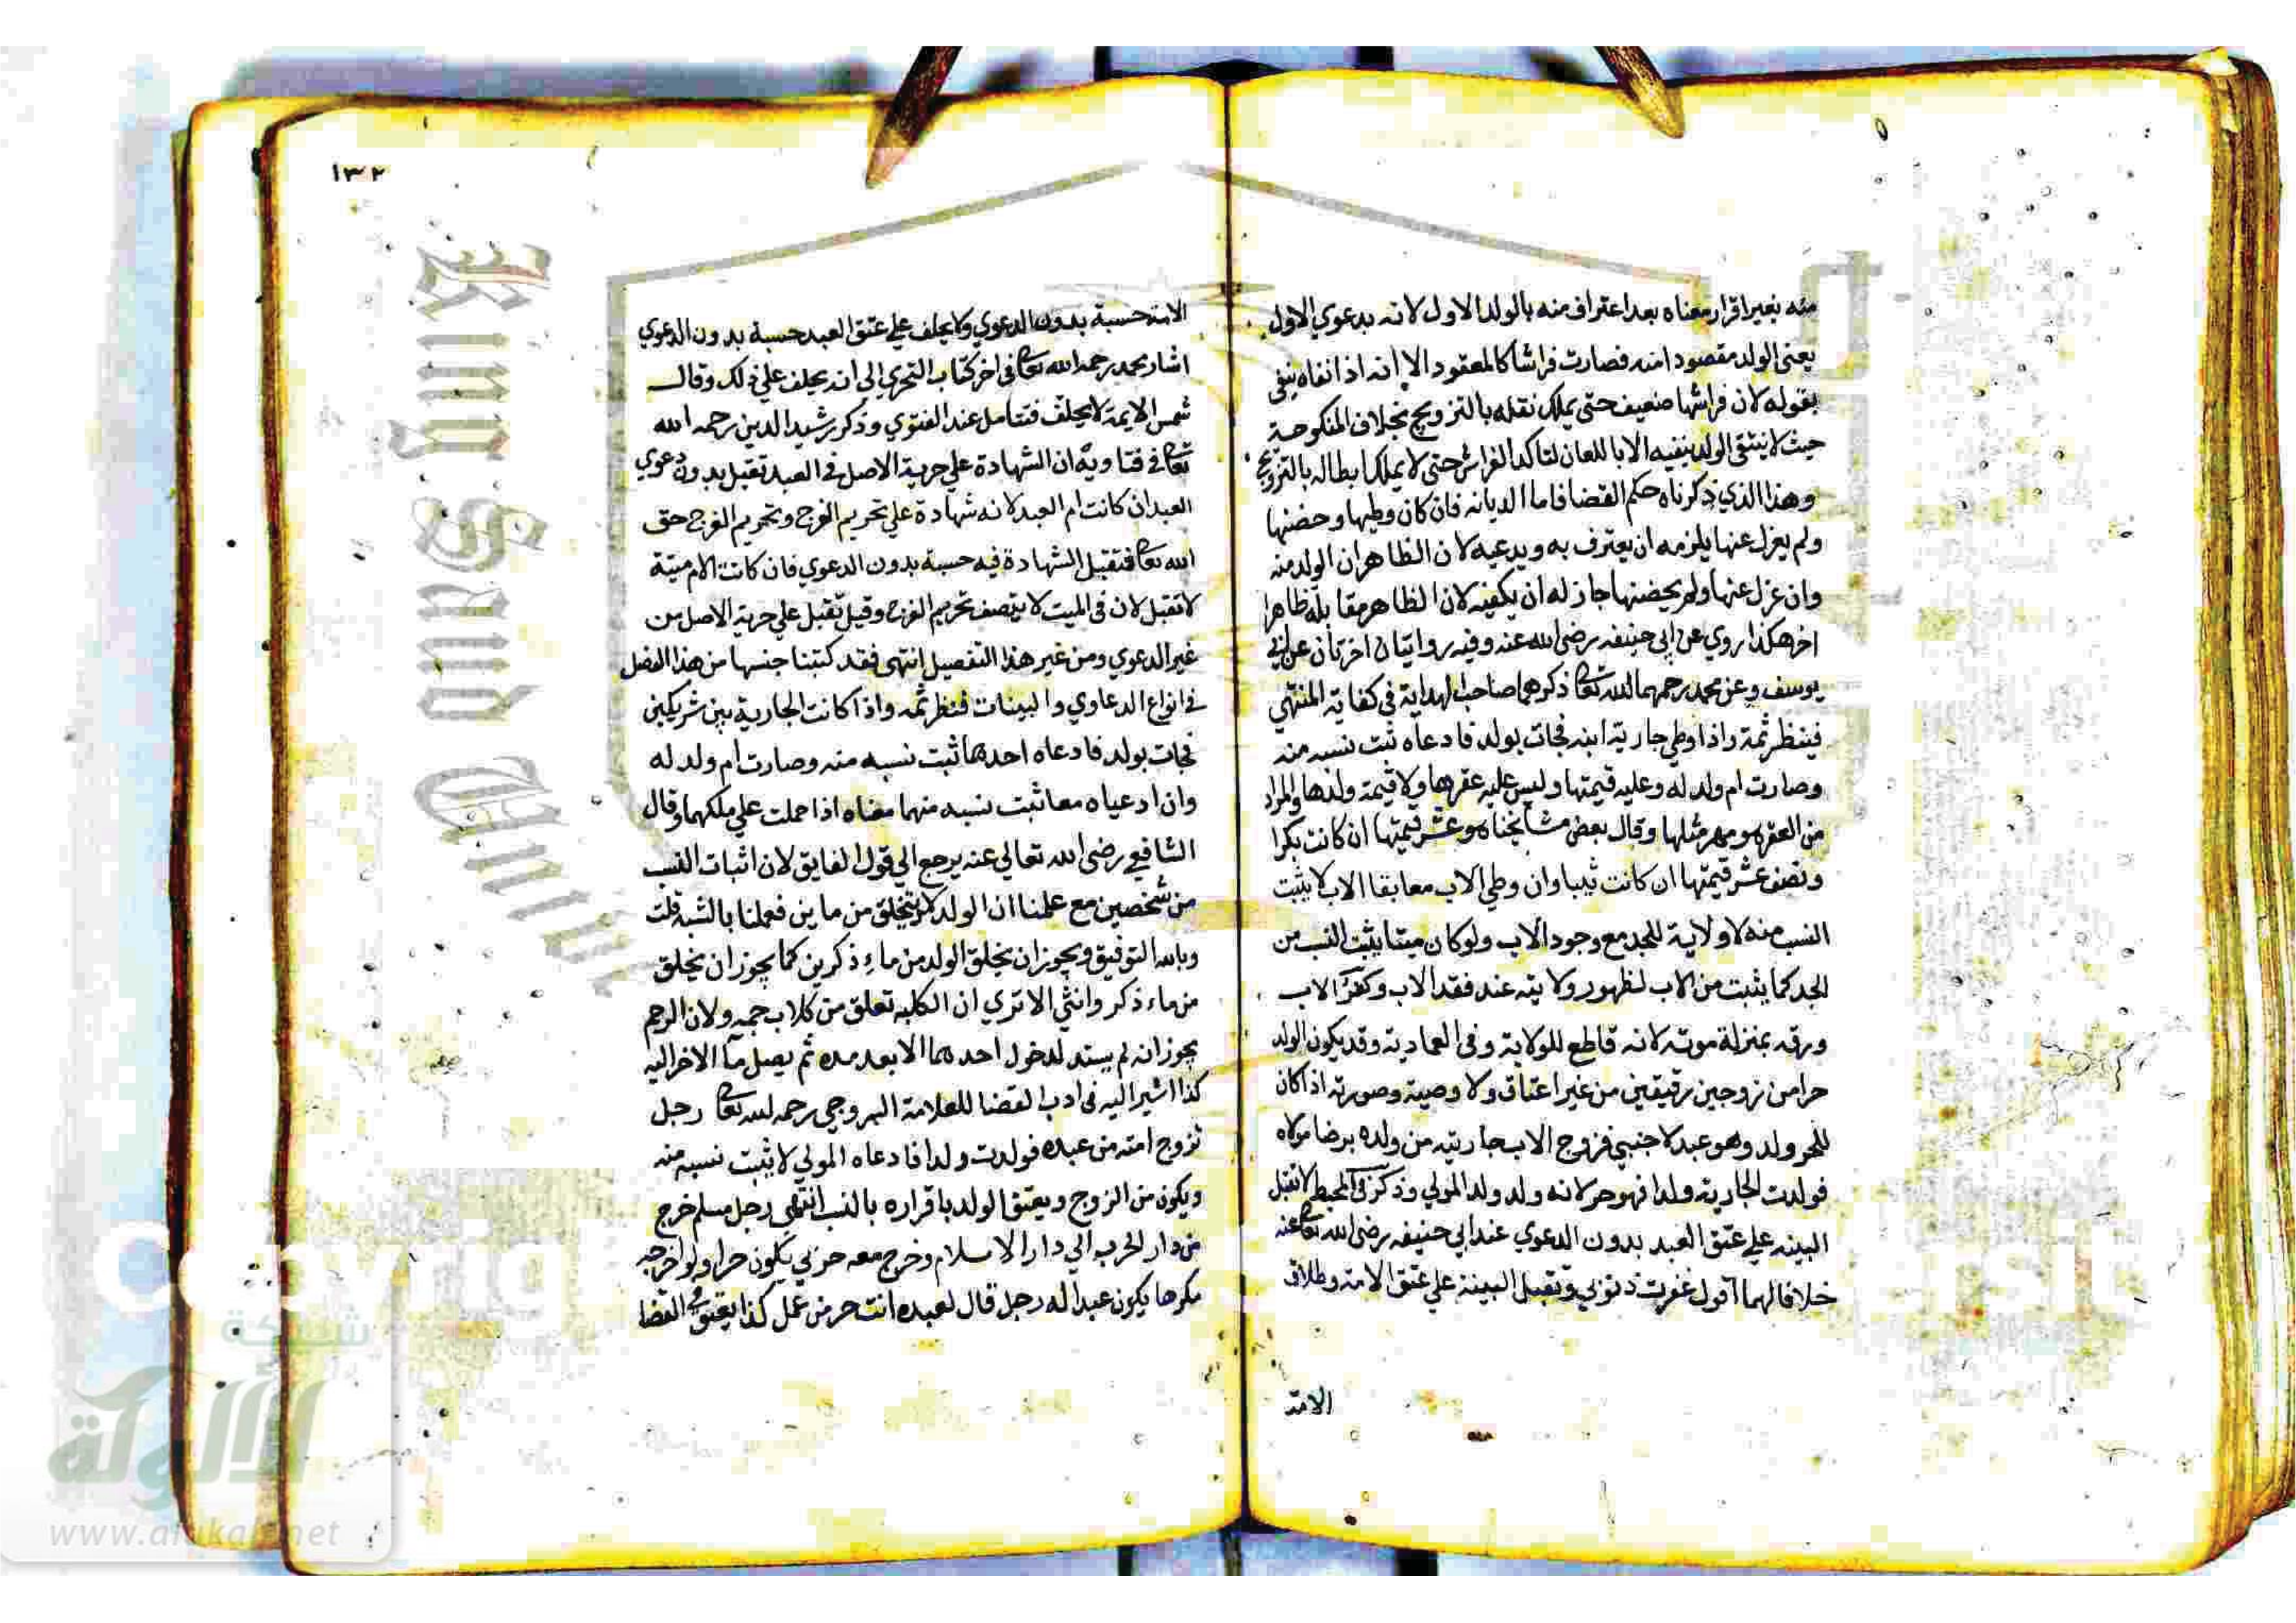 منه بغير اقرار معناه بعد اعتراف منه بالولد الاول لانه بدعوي الاول
يعني الولد مقصودا منه فصارت فراشا كالمعقود الا انه اذا نفاه ينفي
بقوله لان فراشها ضعيف حتى يملك نقله بالتزويج بخلاف المنكوحة
حيث لا ينتفي الولد بنفيه الا باللعان لتاكد الفراش حتى لا يملك ابطاله بالتزويج
وهذا الذي ذكرناه حكم القضا فاما الديانه فان كان وطيها وحضنها
ولم يعزل عنها يلزمه ان يعترف به ويدعيه لان الظاهر ان الولد منه
وان عزل عنها ولم يحضنها جاز له ان ينفيه لان الظاهر مقابله ظاهرا
اخر هكذا روي عن ابي حنيفه رضي الله عنه وفيه روايتان اخرتان عن ابي
يوسف وعن محمد رحمهما الله تعالى ذكرهما صاحب الهداية في كفاية المنتهي
فينظر ثمة واذا وطي جارية ابنه فجات بولد فادعاه ثبت نسبه منه
وصارت ام ولد له وعليه قيمتها وليس عليه عقرها ولا قيمة ولدها والمراد
من العقر هو مهر مثلها وقال بعض مشايخنا هو عشر قيمتها ان كانت بكرا
ونصف عشر قيمتها ان كانت ثيبا وان وطي الاب مع ابقا الاب لا يثبت
النسب منه لا ولاية للجد مع وجود الاب ولو كان ميتا يثبت النسب من
الجد كما يثبت من الاب لظهور ولايته عند فقد الاب وكفر الاب
ورقه بمنزلة موته لانه قاطع للولاية وفي العمادية وقد يكون الولد
حرا من زوجين رقيقين من غير اعتاق ولا وصية وصورته اذا كان
للحر ولد وهو عبد لاجنبي فزوج الاب جاريته من ولده برضا مولاه
فولدت الجارية ولدا فهو حر لانه ولد ولد المولي وذكر في المحيط لا تقبل
البينه علي عتق العبد بدون الدعوي عند ابي حنيفه رضي الله تعالى عنه
خلافا لهما اقول غفرت ذنوبي وتقبل البينة علي عتق الامة وطلاق
الامة
١٣٢
الامة حسبة بدون الدعوي ولا يحلف علي عتق العبد حسبة بدون الدعوي
اشار محمد رحمه الله تعالى في اخر كتاب التحري الي انه يحلف علي ذلك وقال
شمس الايمة لا يحلف فتتامل عند الفتوي وذكر رشيد الدين رحمه الله
تعالى في فتاويه ان الشهادة علي حرية الاصل في العبد تقبل بدون دعوي
العبد ان كانت ام العبد لانه شهادة علي تحريم الفرج وتحريم الفرج حق
الله تعالى فتقبل الشهادة فيه حسبة بدون الدعوي فان كانت الام ميتة
لا تقبل لان في الميت لا يتصف تحريم الفرج وقيل تقبل علي حرية الاصل من
غير الدعوي ومن غير هذا التفصيل انتهى فقد كتبنا جنسها من هذا الفصل
في انواع الدعاوي والبينات فنظر ثمه واذا كانت الجارية بين شريكين
فجات بولد فادعاه احدهما ثبت نسبه منه وصارت ام ولد له
وان ادعياه معا ثبت نسبه منهما معناه اذا حملت علي ملكهما وقال
الشافعي رضي الله تعالي عنه يرجع الي قول القايق لان اثبات النسب
من شخصين مع علمنا ان الولد لا يتخلق من ماين فعملنا بالشبه قلت
وبالله التوفيق ويجوز ان يخلق الولد من ماء ذكرين كما يجوز ان يخلق
من ماء ذكر وانثي الا تري ان الكلبه تعلق من كلاب جمه ولان الرحم
يجوز انه لم يستد لدخول احدهما الا بعد مده ثم يصل مآ الاخر اليه
كذا اشير اليه في ادب القضا للعلامة السروجي رحمه الله تعالى رجل
تزوج امته من عبده فولدت ولدا فادعاه المولي لا يثبت نسبه منه
ويكون من الزوج ويعتق الولد باقراره بالنسب انتهى رجل مسلم خرج
من دار الحرب الي دار الاسلام وخرج معه حربي يكون حرا ولو اخرجه
مكرها يكون عبدا له رجل قال لعبده انت حر من عمل كذا يعتق في القضا
King Saud Univ
Copyrig
شبكة
الألوكة
www.alukah.net